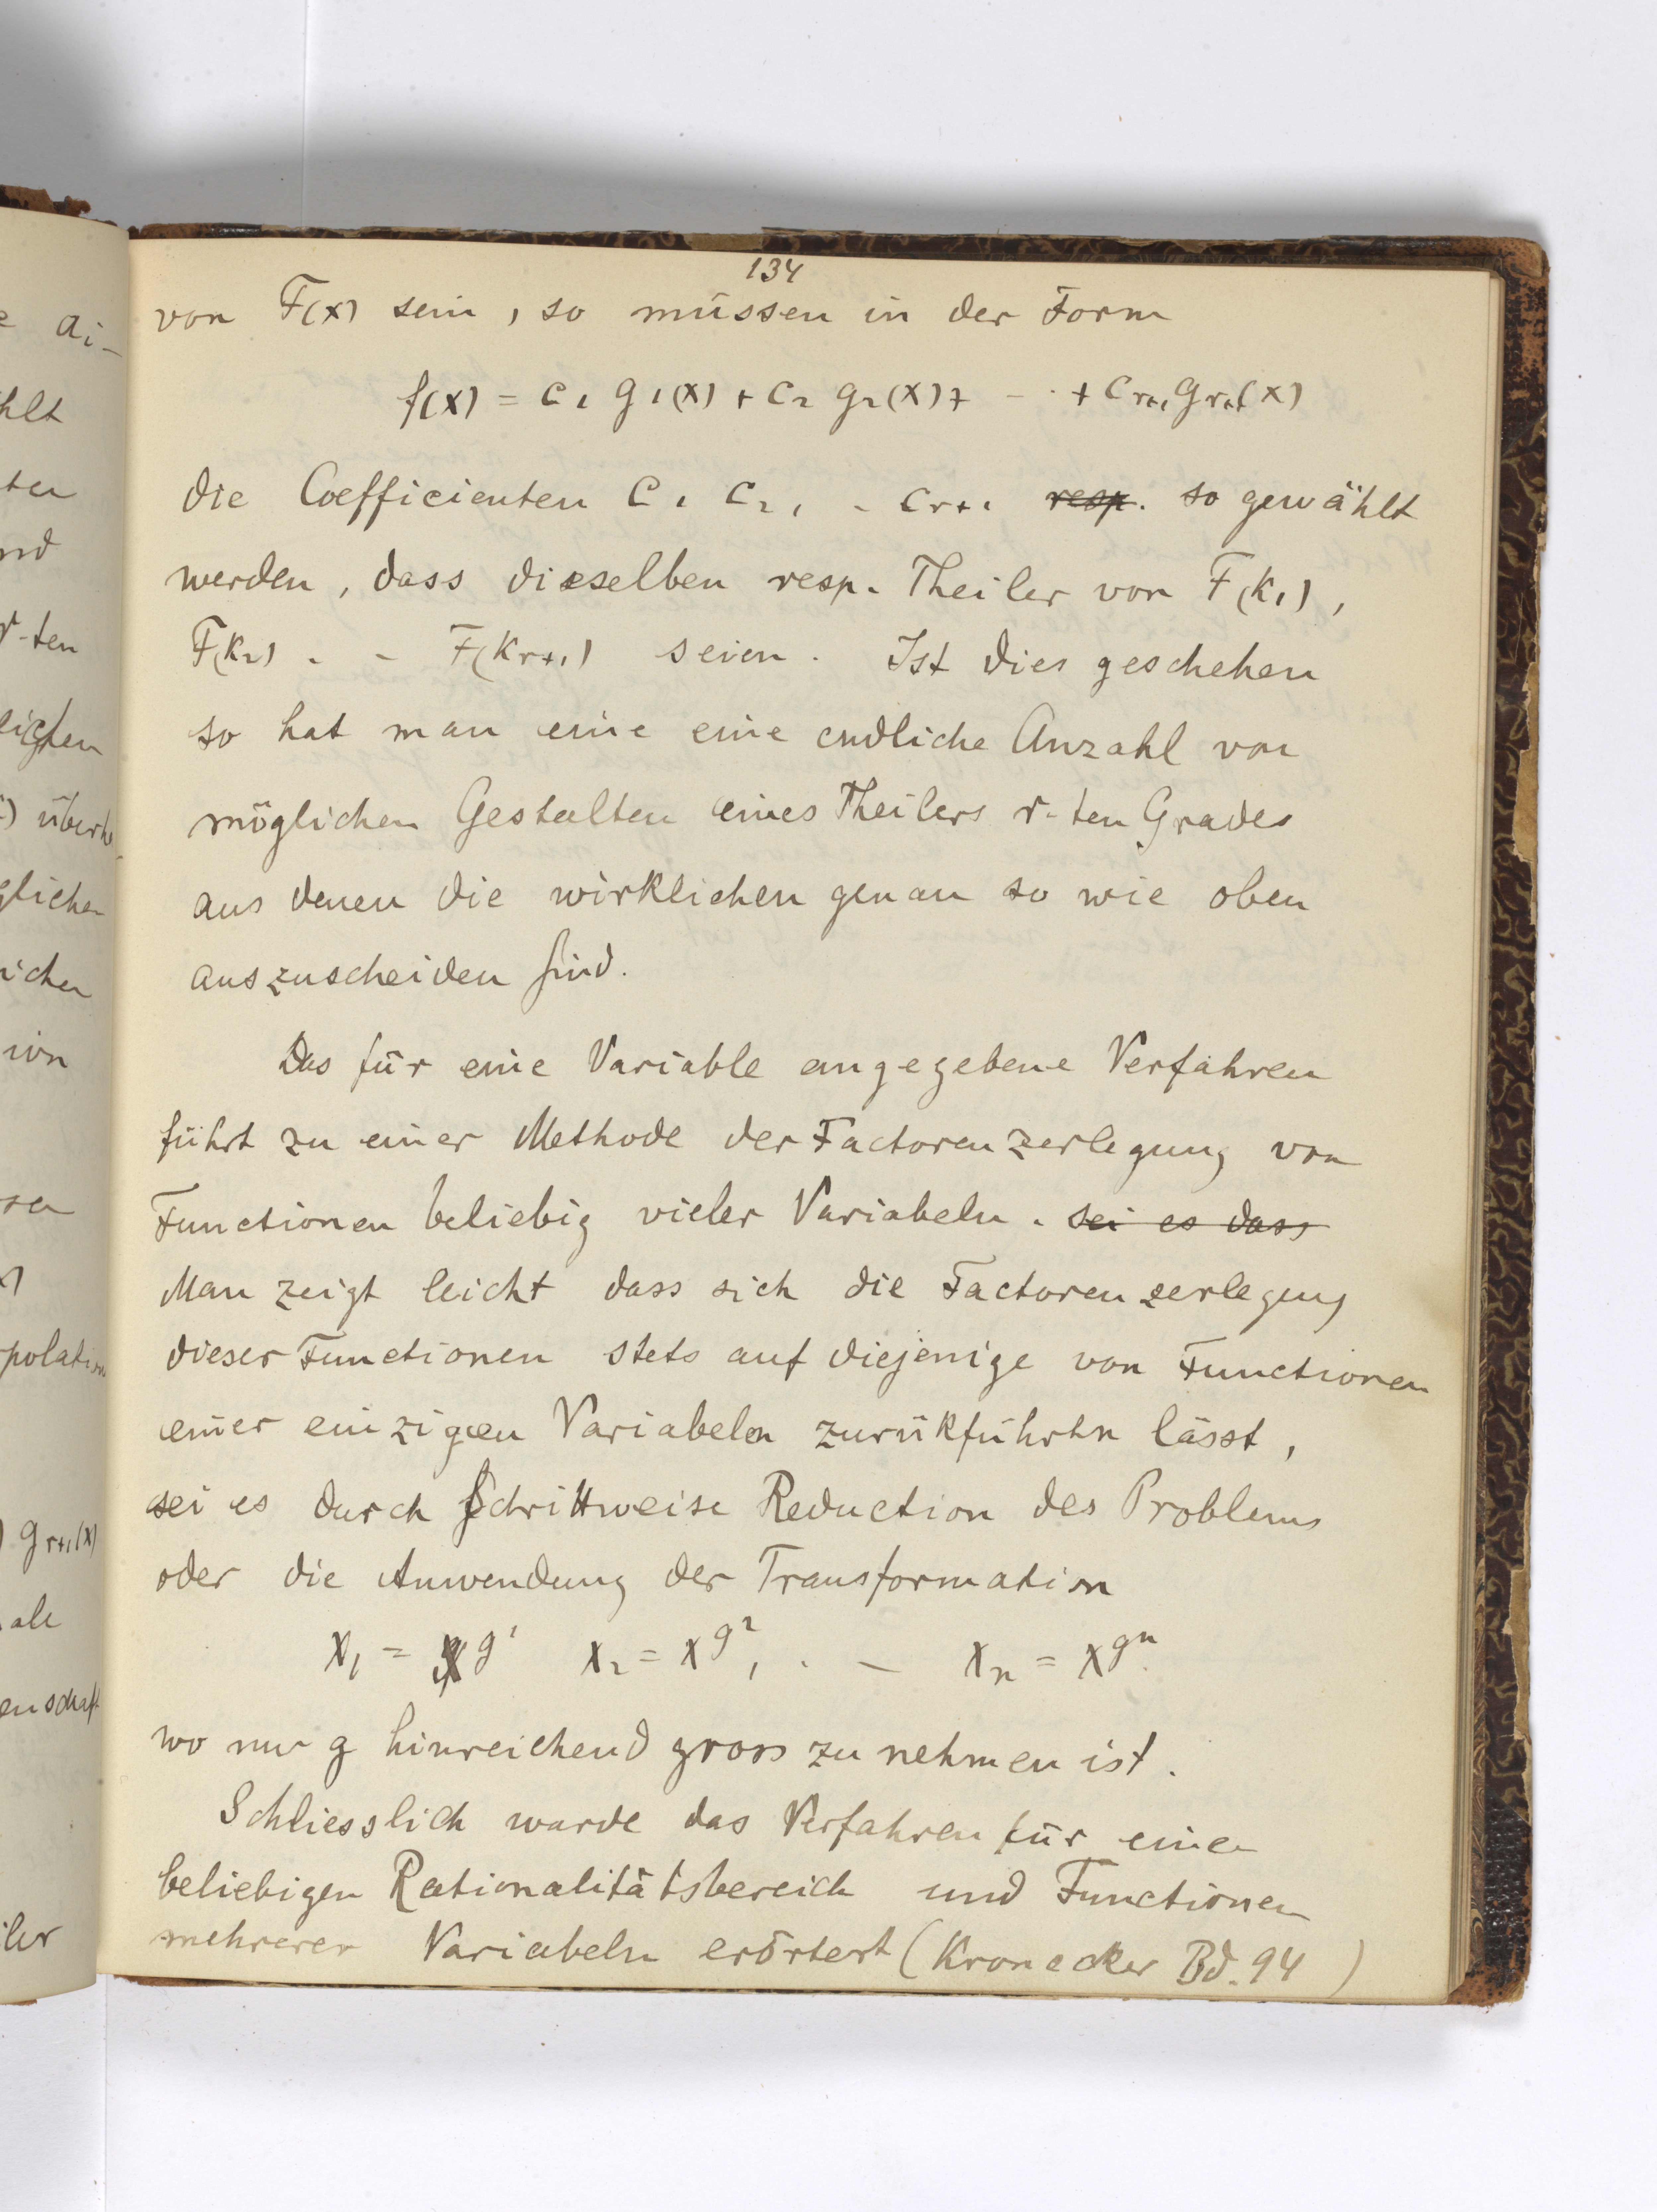 134
von F(x) sein, so müssen in der Form
f(x) = c₁ g₁(x) + c₂ g₂(x) + - · + cᵣ₊₁ gᵣ₊₁(x)
die Coefficienten c₁ c₂, - cᵣ₊₁ ~~resp.~~ so gewählt
werden, dass dieselben resp. Theiler von F(k₁),
F(k₂) . - F(kᵣ₊₁) seien. Ist dies geschehen
so hat man eine eine endliche Anzahl von
möglichen Gestalten eines Theilers r-ten Grades
aus denen die wirklichen genau so wie oben
auszuscheiden sind.
Das für eine Variable angegebene Verfahren
führt zu einer Methode der Factorenzerlegung von
Functionen beliebig vieler Variabeln. ~~sei es dass~~
Man zeigt leicht dass sich die Factorenzerlegung
dieser Functionen stets auf diejenige von Functionen
einer einzigen Variabeln zurükführen lässt,
sei es durch Schrittweise Reduction des Problems
oder die Anwendung der Transformation
x₁ = x^g¹ x₂ = x^g², . - xₙ = x^gⁿ.
wo nur g hinreichend gross zu nehmen ist.
Schliesslich wurde das Verfahren für einen
beliebigen Rationalitätsbereich und Functionen
mehrerer Variabeln erörtert (Kronecker Bd. 94 )
ai-
hlt
ten
nd
r-ten
lichen
glichen
icher
ion
polation
) gᵣ₊₁(x)
ale
enschaft
iler